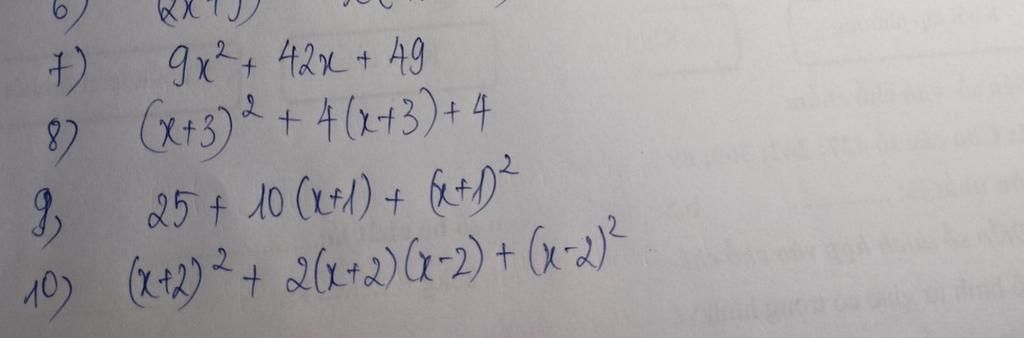 6) (2x+
7) 9x² + 42x + 49
8) (x+3)² + 4(x+3)+4
9, 25 + 10(x+1) + (x+1)²
10) (x+2)² + 2(x+2)(x-2) + (x-2)²